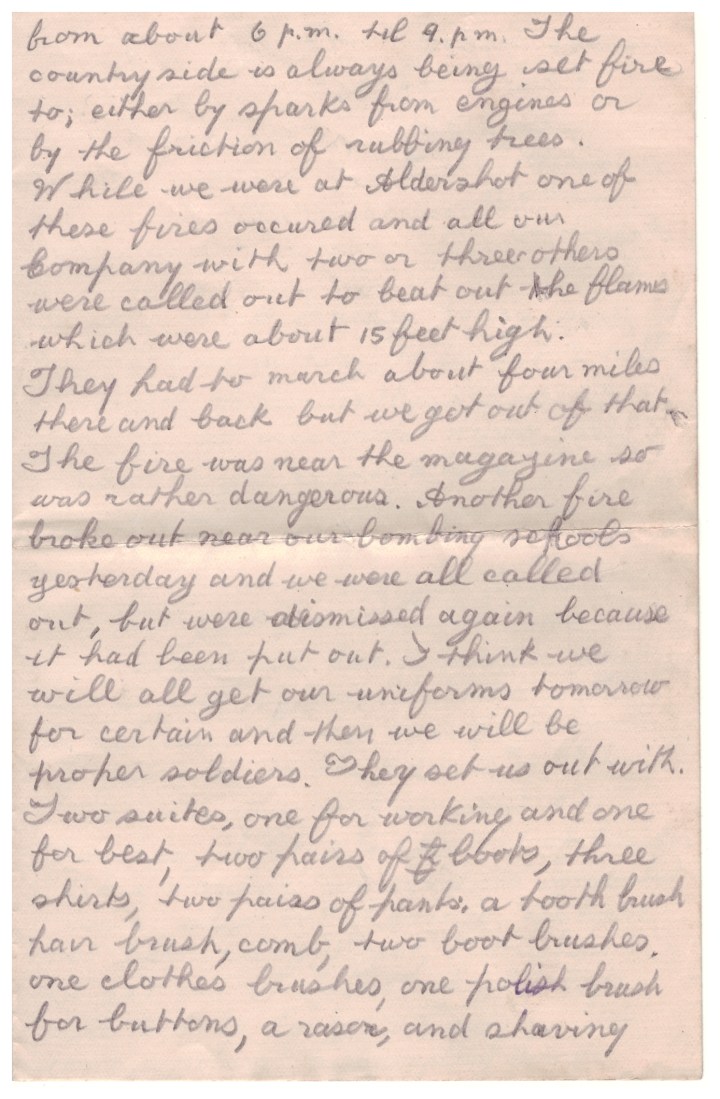 from about 6 p.m. til 9.p.m. The
countryside is always being set fire
to; either by sparks from engines or
by the friction of rubbing trees.
While we were at Aldershot one of
these fires occured and all our
Company with two or three others
were called out to beat out the flames
which were about 15 feet high.
They had to march about four miles
there and back but we got out of that.
The fire was near the magazine so
was rather dangerous. Another fire
broke out near our bombing schools
yesterday and we were all called
out, but were dismissed again because
it had been put out. I think we
will all get our uniforms tomorrow
for certain and then we will be
proper soldiers. They set us out with.
Two suites, one for working and one
for best, two pairs of boots, three
shirts, two pairs of pants, a tooth brush
hair brush, comb, two boot brushes.
one clothes brushes, one polish brush
for buttons, a rasor, and shaving